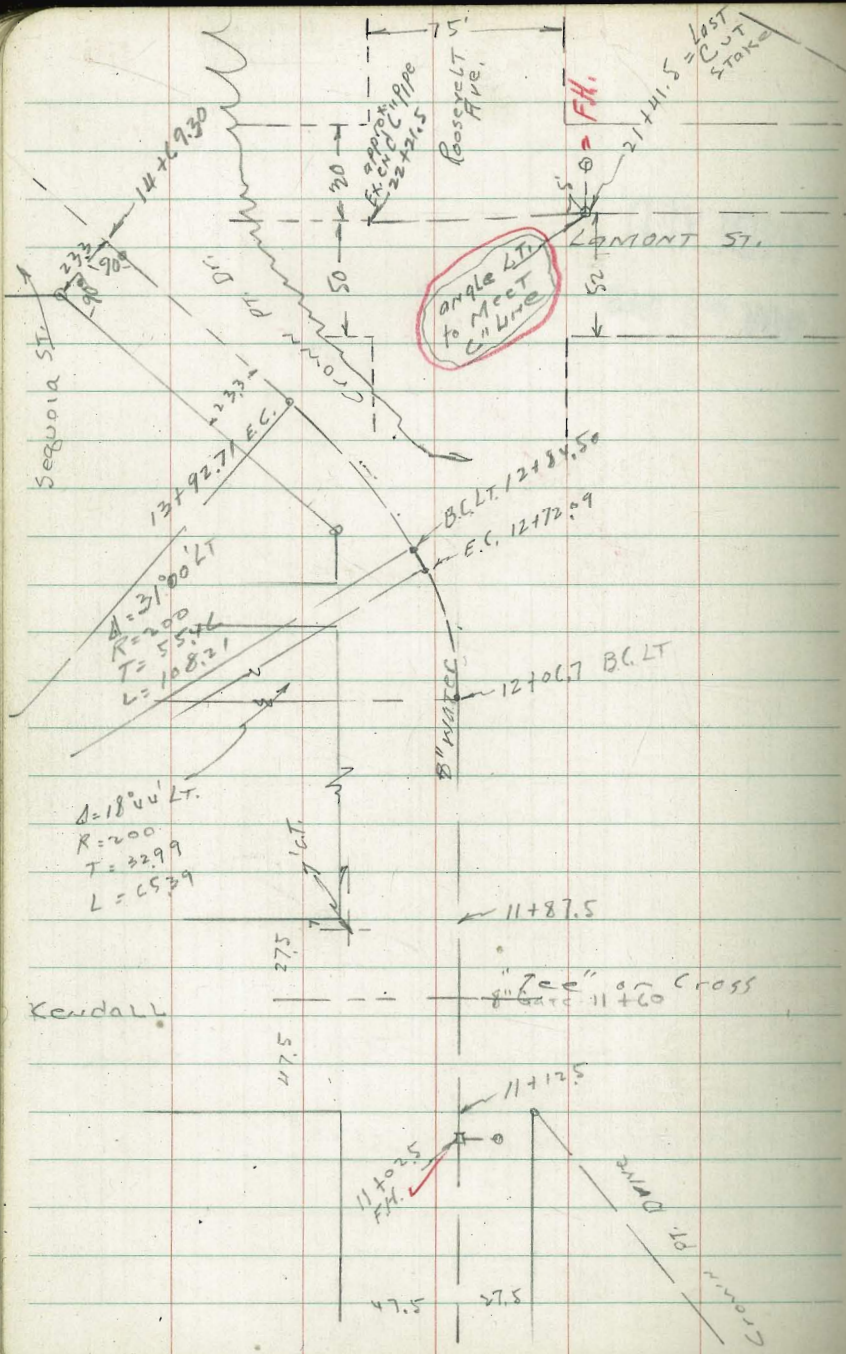 75'
Roosevelt
Ave.
approx.
Ex. end 6" Pipe
22+21.5
= F.H.
21+41.5 = Last
Cut
Stake
30
50
5'
52
LAMONT ST.
angle LT.
to Meet
6" Line
14+69.30
23.3
90°
90°
Sequoia ST.
Crown Pt. Dr.
23.3
13+92.71 E.C.
B.C. LT. 12+84.50
E.C. 12+72.09
Δ=31°00' LT
R=200
T=55.46
L=108.21
8" water
12+06.7 B.C. LT
Δ=18°44' LT.
R=200
T=32.99
L=65.39
7' C.T.
7
11+87.5
27.5
"Tee" or Cross
8" Gate 11+60
Kendall
47.5
11+12.5
11+02.5
F.H.
Crown Pt. Drive
47.5
27.5